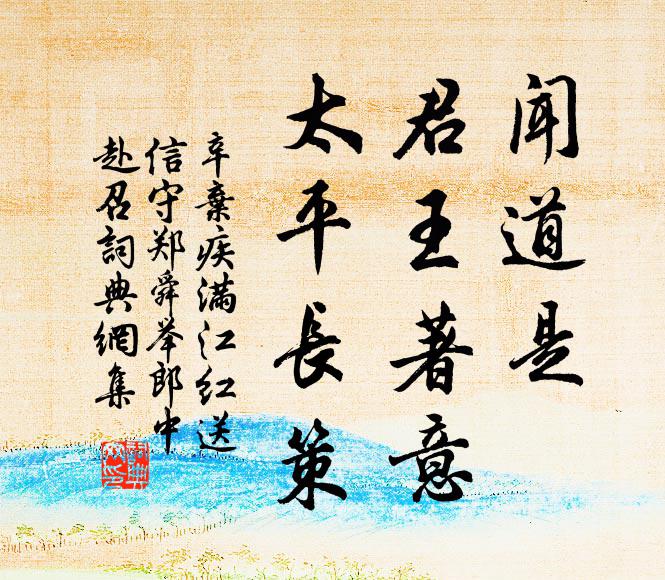 聞道是
君王著意
太平長策
辛棄疾滿江紅送
信守郑舜举郎中
赴召詞典網集